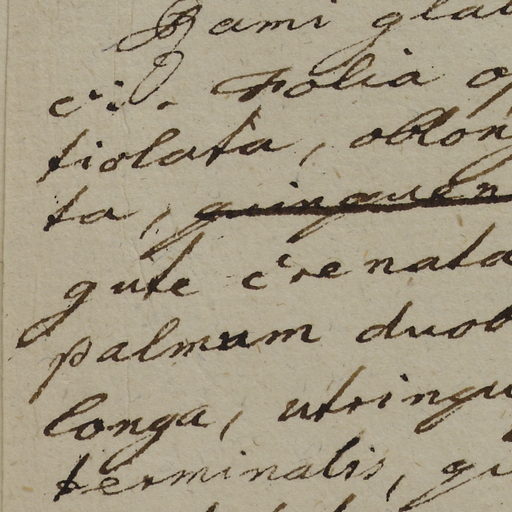 Rami gla
ci. Folia op
tiolata, oblon
ta, quinquen
gute crenata
palmam duob
longa, utrinqu
terminalis, qu